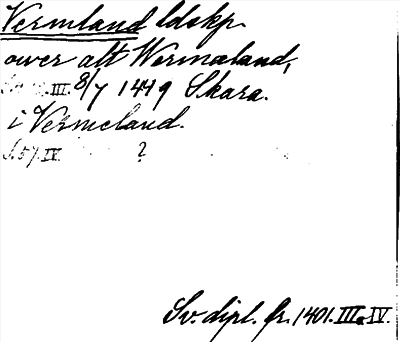 Vermland ldskp.
ower alt Wermaland,
III. 8/7 1449 Skara.
i Vermeland.
S. 57. IV. ?
Sv. dipl. fr. 1401. III. IV.